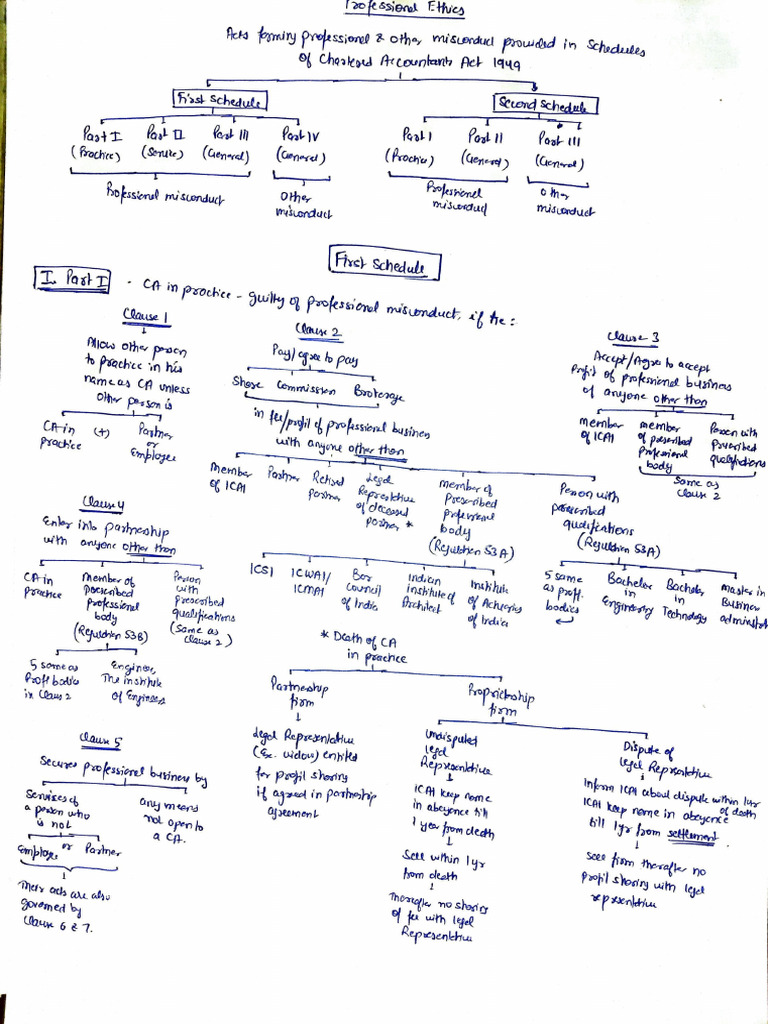 Professional Ethics
Acts forming professional & other misconduct provided in schedules
of Chartered Accountants Act 1949
First Schedule
Second Schedule
Part I
(Practice)
Part II
(Service)
Part III
(General)
Part IV
(General)
Part I
(Practice)
Part II
(General)
Part III
(General)
Professional misconduct
Other
misconduct
Professional
misconduct
Other
misconduct
First Schedule
I. Part I
- CA in practice - guilty of professional misconduct, if he:
Clause 1
Allow other person
to practice in his
name as CA unless
other person is
CA in
practice
(+)
Partner
or
Employee
Clause 2
Pay/agree to pay
Share
Commission
Brokerage
in fee/profit of professional business
with anyone other than
Member
of ICAI
Partner
Retired
partner
Legal
Representative
of deceased
partner *
Member of
Prescribed
professional
body
(Regulation 53A)
Person with
prescribed
qualifications
(Regulation 53A)
ICSI
ICWAI/
ICMAI
Bar
Council
of India
Indian
institute of
Architect
Institute
of Actuaries
of India
5 same
as prof.
bodies
Bachelor
in
Engineering
Bachelor
in
Technology
Master in
Business
administration
Clause 3
Accept/Agree to accept
Profit of professional business
of anyone other than
member
of ICAI
member
of prescribed
Professional
body
Person with
Prescribed
qualifications
Same as
clause 2
Clause 4
Enter into partnership
with anyone other than
CA in
practice
Member of
Prescribed
professional
body
(Regulation 53B)
Person
with
prescribed
qualifications
(Same as
clause 2)
5 same as
Prof bodies
in Claus 2
Engineer,
The institute
of Engineers
* Death of CA
in practice
Partnership
firm
Legal Representative
(Ex. widow) entitled
for profit sharing
if agreed in partnership
agreement
Proprietorship
firm
Undisputed
legal
Representative
ICAI keep name
in abeyance till
1 year from death
Sell within 1yr
from death
Thereafter no sharing
of fee with legal
Representative
Dispute of
legal Representative
Inform ICAI about dispute within 1yr
of death
ICAI keep name in abeyence
till 1yr from settlement.
Sell firm therafter no
profit sharing with legal
representative
Clause 5
Secures professional business by
Services of
a person who
is not
any means
not open to
a CA.
Employee
or
Partner
Their acts are also
governed by
Clause 6 & 7.